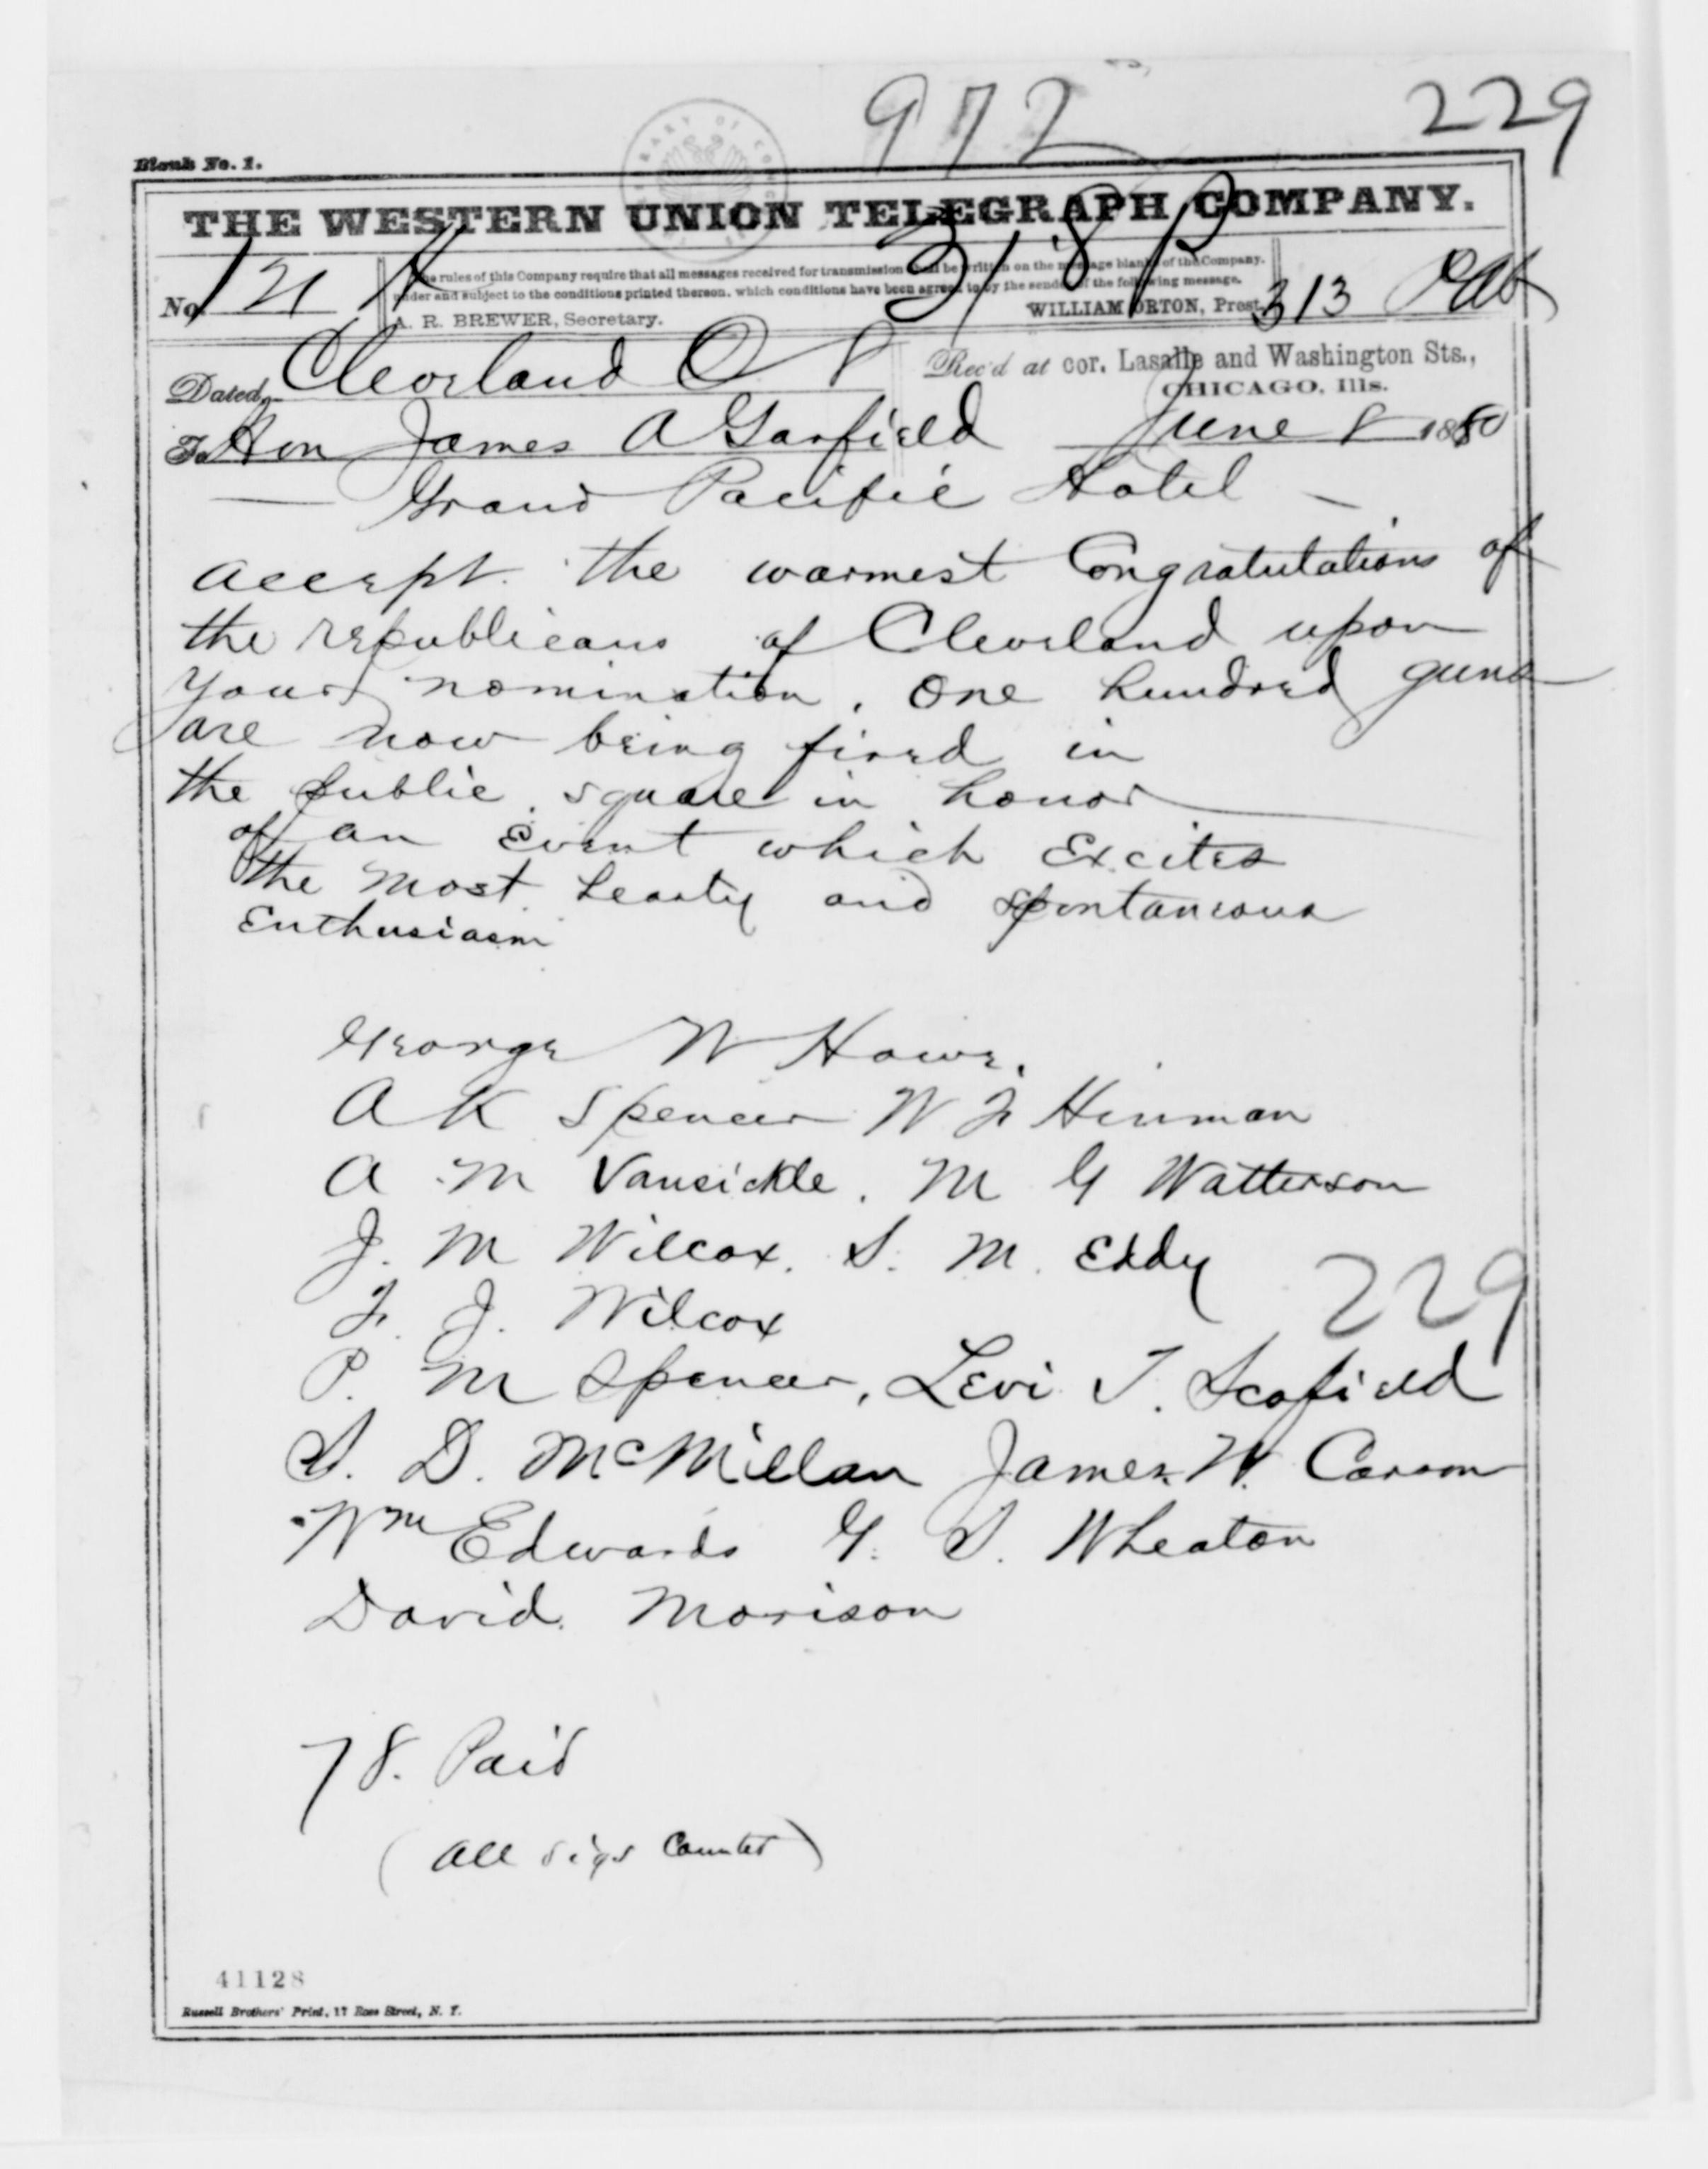 972 229
Blank No. 1.
THE WESTERN UNION TELEGRAPH COMPANY.
318P
The rules of this Company require that all messages received for transmission shall be written on the message blanks of the Company.
under and subject to the conditions printed thereon, which conditions have been agreed to by the sender of the following message.
No. 121
A. R. BREWER, Secretary. WILLIAM ORTON, Prest.
313
Dated, Cleveland O 8
Rec'd at cor. Lasalle and Washington Sts.,
CHICAGO, Ills.
June 8 1880
To Hon James A Garfield
Grand Pacific Hotel
accept the warmest Congratulations of
the republicans of Cleveland upon
your nomination. One hundred guns
are now being fired in
the public square in honor
of an Event which Excites
the most hearty and spontaneous
Enthusiasm
George W Howe.
A K Spencer W F Hinman
A M Vansickle. M G Watterson
J. M Wilcox. S. M. Eddy
F. J. Wilcox
229
P. M Spencer, Levi T. Scofield
S. D. McMillan James W. Carson
Wm Edwards G. S. Wheaton
David Morison
78. Paid
(All sigs Counted)
41128
Russell Brothers' Print, 17 Rose Street, N. Y.